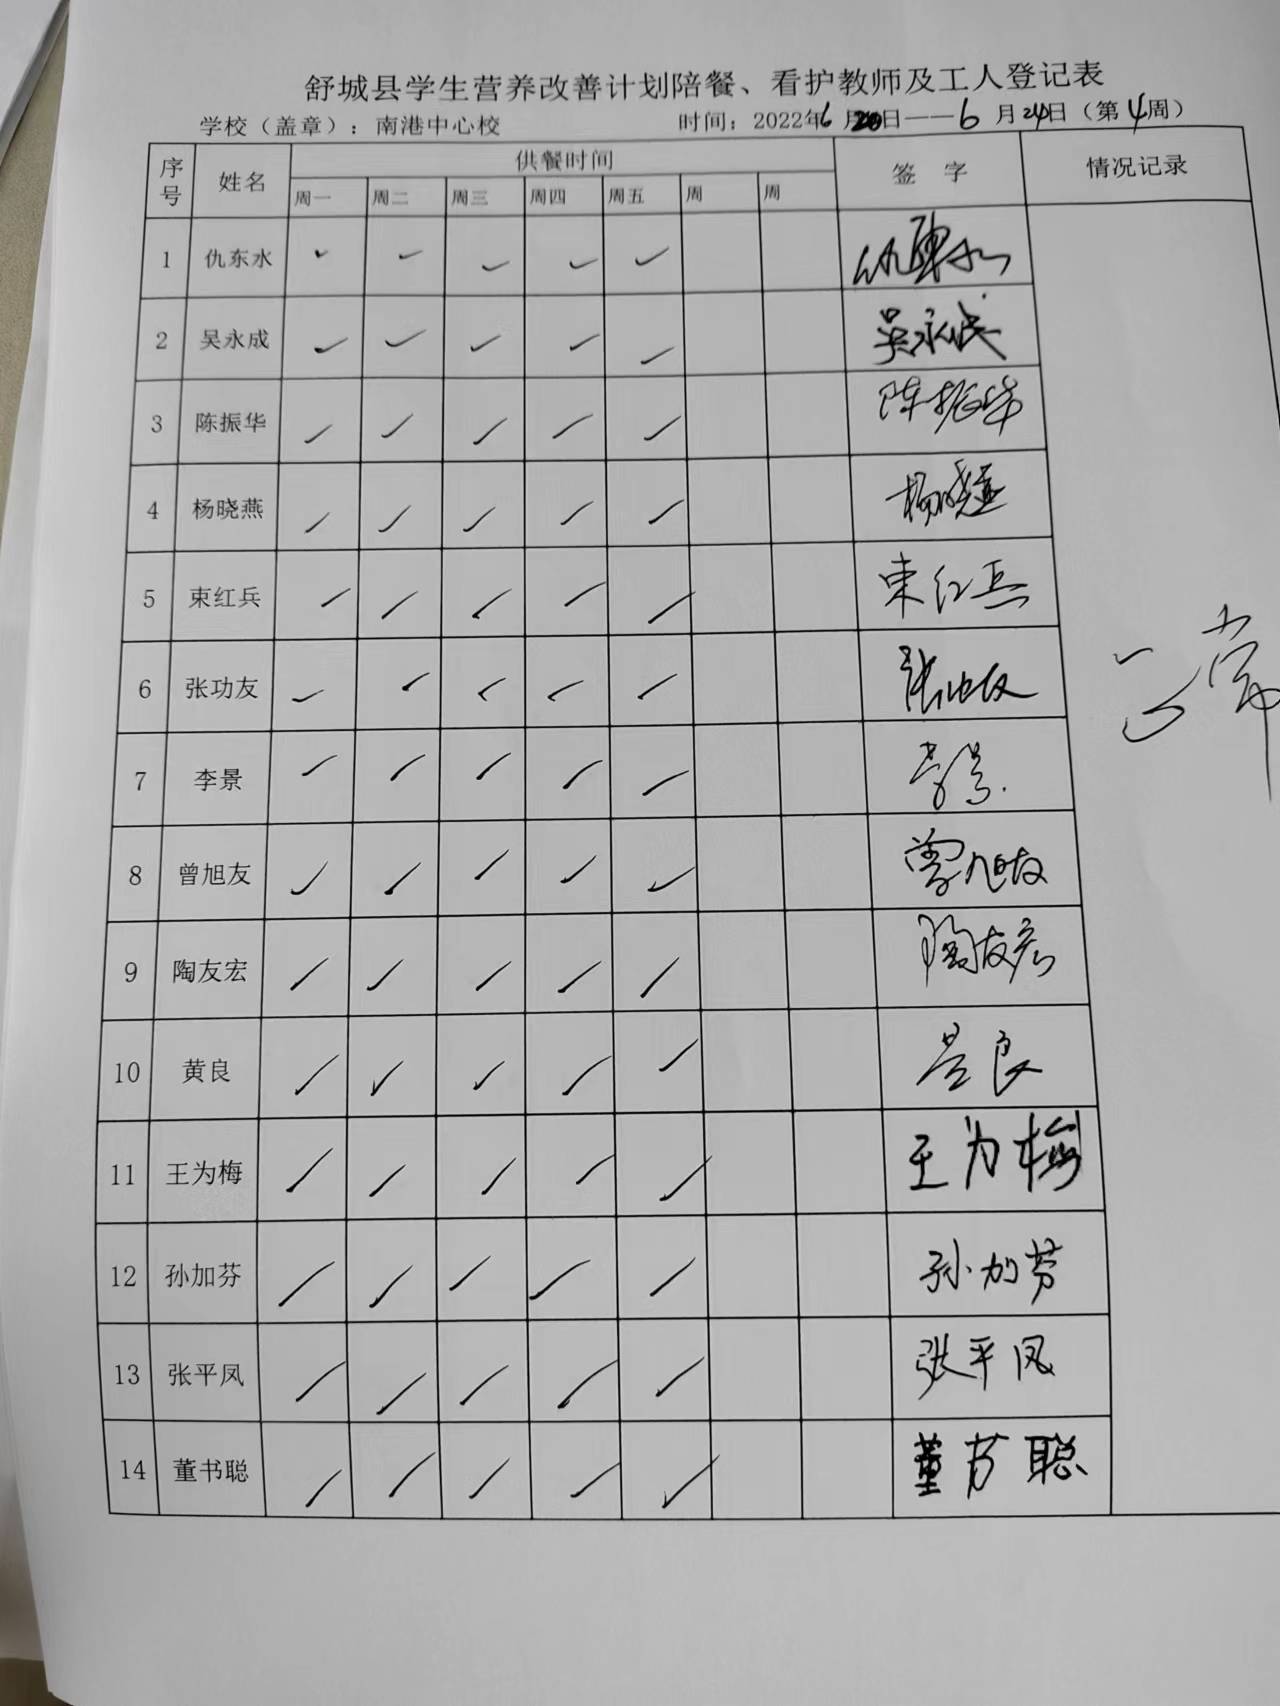 舒城县学生营养改善计划陪餐、看护教师及工人登记表
学校（盖章）：南港中心校 时间：2022年6月20日——6月24日（第4周）
序号 姓名 供餐时间 签字 情况记录
周一 周二 周三 周四 周五 周 周
1 仇东水 ✓ ✓ ✓ ✓ ✓ 仇东水
2 吴永成 ✓ ✓ ✓ ✓ ✓ 吴永成
3 陈振华 ✓ ✓ ✓ ✓ ✓ 陈振华
4 杨晓燕 ✓ ✓ ✓ ✓ ✓ 杨晓燕
5 束红兵 ✓ ✓ ✓ ✓ ✓ 束红兵
6 张功友 ✓ ✓ ✓ ✓ ✓ 张功友
正常
7 李景 ✓ ✓ ✓ ✓ ✓ 李景
8 曾旭友 ✓ ✓ ✓ ✓ ✓ 曾旭友
9 陶友宏 ✓ ✓ ✓ ✓ ✓ 陶友宏
10 黄良 ✓ ✓ ✓ ✓ ✓ 黄良
11 王为梅 ✓ ✓ ✓ ✓ ✓ 王为梅
12 孙加芬 ✓ ✓ ✓ ✓ ✓ 孙加芬
13 张平凤 ✓ ✓ ✓ ✓ ✓ 张平凤
14 董书聪 ✓ ✓ ✓ ✓ ✓ 董书聪